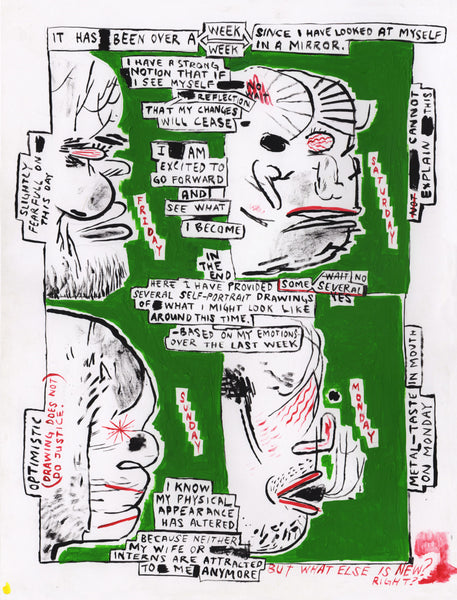 IT HAS BEEN OVER A WEEK SINCE I HAVE LOOKED AT MYSELF
WEEK IN A MIRROR.
I HAVE A STRONG
NOTION THAT IF
I SEE MYSELF
REFLECTION
THAT MY CHANGES
WILL CEASE
I AM
EXCITED TO
GO FORWARD
AND
SEE WHAT
I BECOME
IN
THE
END
SLIGHTLY
FEARFULL ON
THIS DAY
FRIDAY
SATURDAY
NOT CANNOT
EXPLAIN THIS
HERE I HAVE PROVIDED SOME -WAIT NO
SEVERAL
SEVERAL SELF-PORTRAIT DRAWINGS YES
OF WHAT I MIGHT LOOK LIKE
AROUND THIS TIME.
-BASED ON MY EMOTIONS
OVER THE LAST WEEK
OPTIMISTIC
(DRAWING DOES NOT)
DO JUSTICE!
SUNDAY
MONDAY
METAL-TASTE IN MOUTH
ON MONDAY
I KNOW
MY PHYSICAL
APPEARANCE
HAS ALTERED
BECAUSE NEITHER
MY WIFE OR
INTERNS ARE ATTRACTED
TO ME ANYMORE
BUT WHAT ELSE IS NEW?
RIGHT?